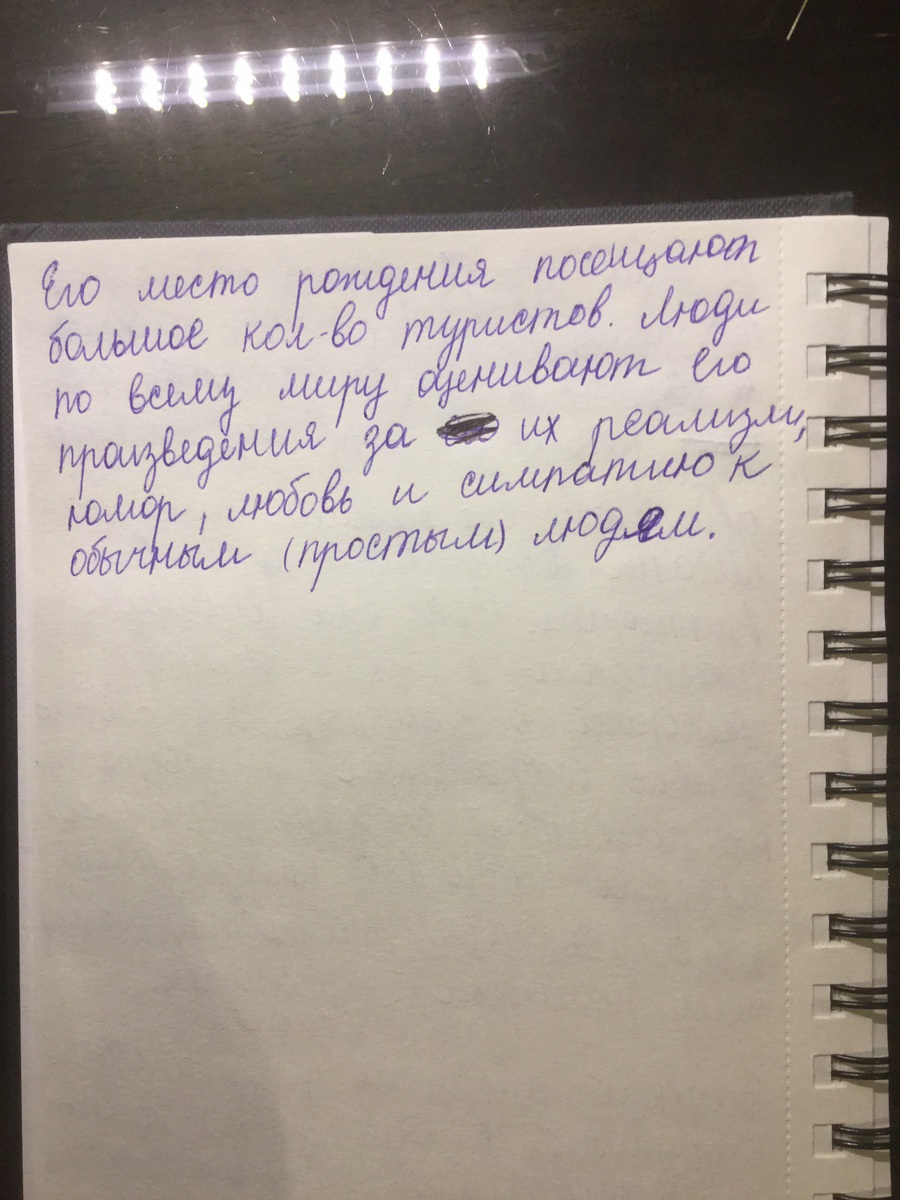 Его место рождения посещают
большое кол-во туристов. Люди
по всему миру оценивают его
произведения за их реализм,
юмор, любовь и симпатию к
обычным (простым) людям.